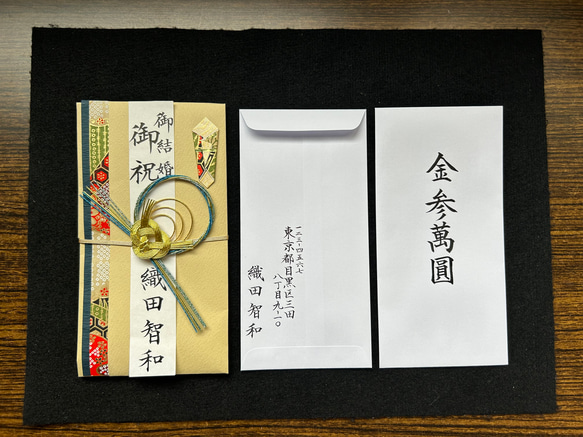 御結婚
御祝
織田智和
一二三-四五六七
東京都目黒区三田
八丁目九-一〇
織田智和
金参萬圓